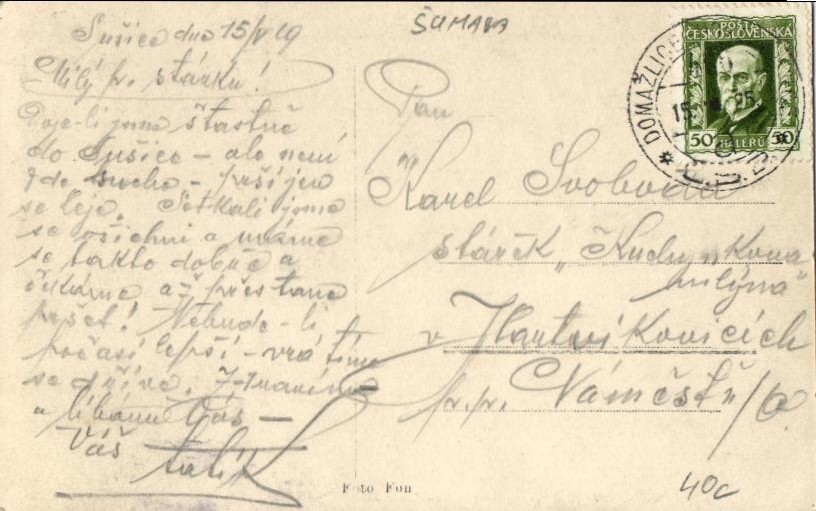 ŠUMAVA
Sušice dne 15/V 19
Milý p. stárku!
Dojeli jsme šťastně
do Sušice – ale není
zde sucho – prší jen
se leje. Setkali jsme
se všichni a máme
se takto dobře a
čekáme až přestane
pršet! Nebude-li
počasí lepší – vrátíme
se dříve.
a líbáme Vás –
Váš
tatík
Pan
Karel Svoboda
stárek „Kuchynkova
mlýna"
v Hartvíkovicích
p.p. Náměšť n/O
POŠTA
ČESKOSLOVENSKÁ
50 HALÉŘŮ 50
DOMAŽLICE
Foto Fon
40c